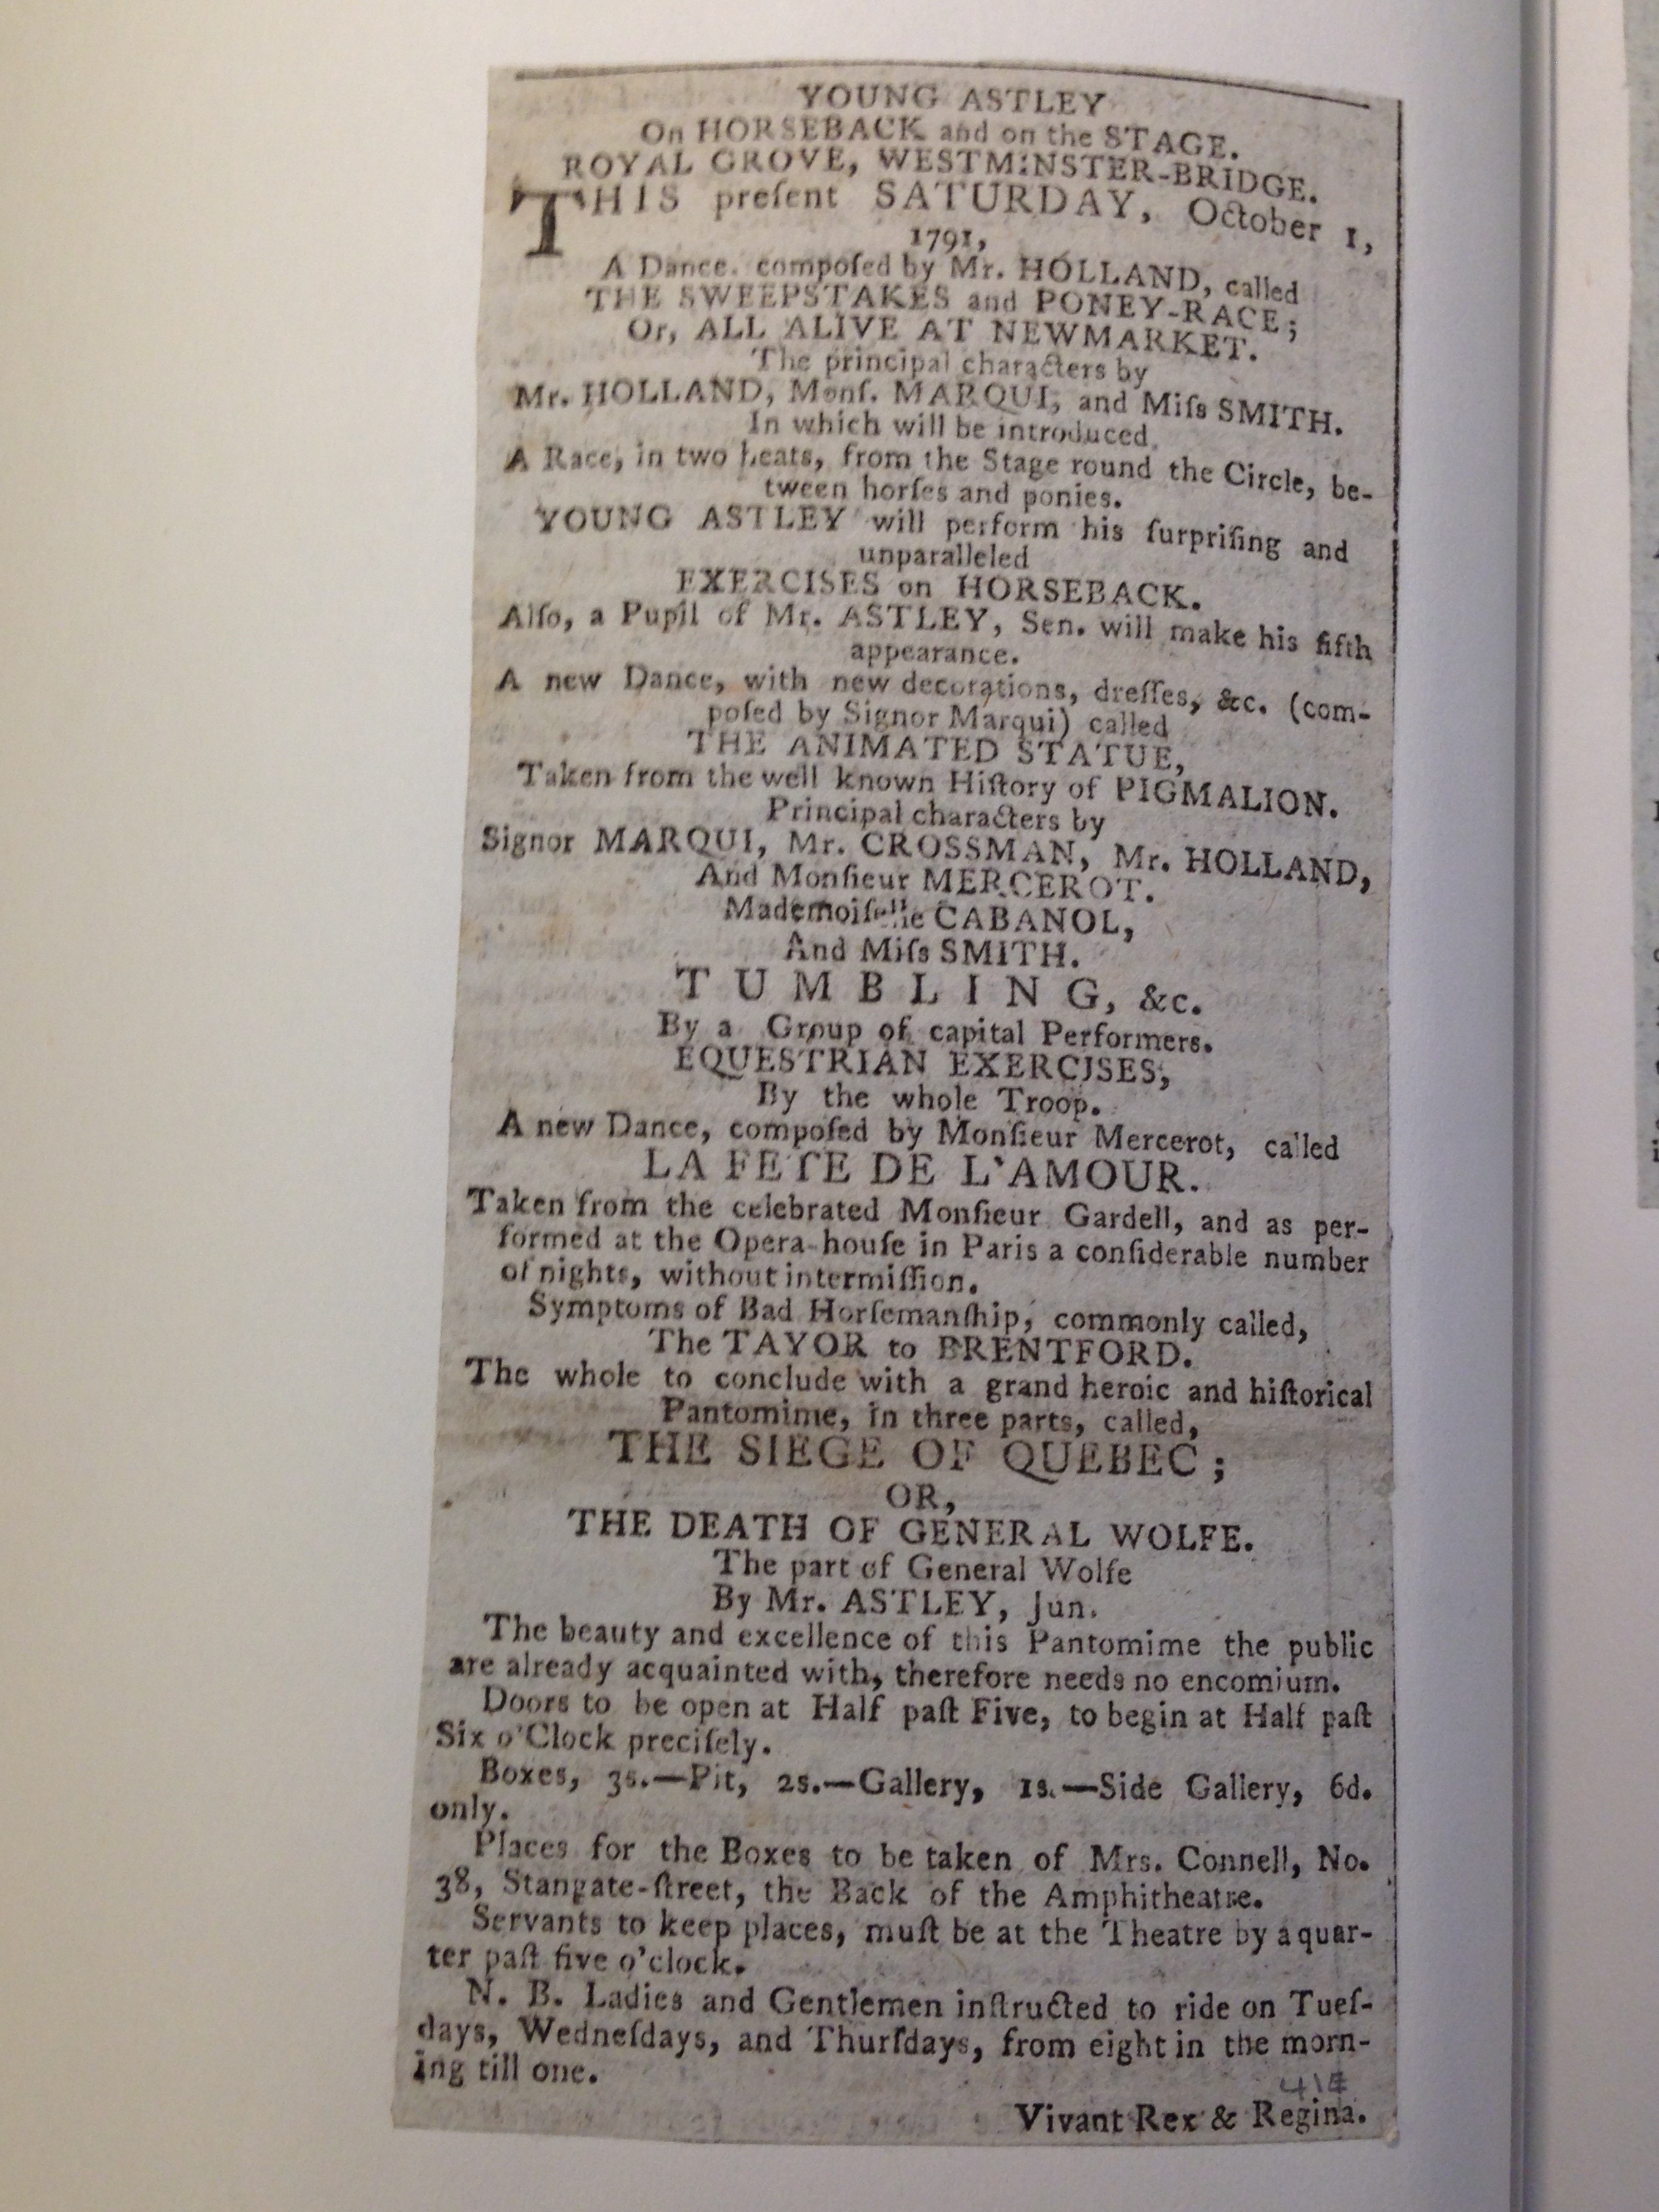 YOUNG ASTLEY
On HORSEBACK and on the STAGE.
ROYAL GROVE, WESTMINSTER-BRIDGE.
THIS preſent SATURDAY, October 1,
1791,
A Dance. compoſed by Mr. HOLLAND, called
THE SWEEPSTAKES and PONEY-RACE;
Or, ALL ALIVE AT NEWMARKET.
The principal characters by
Mr. HOLLAND, Monſ. MARQUI, and Miſs SMITH.
In which will be introduced
A Race, in two heats, from the Stage round the Circle, be-
tween horſes and ponies.
YOUNG ASTLEY will perform his ſurpriſing and
unparalleled
EXERCISES on HORSEBACK.
Alſo, a Pupil of Mr. ASTLEY, Sen. will make his fifth
appearance.
A new Dance, with new decorations, dreſſes, &c. (com-
poſed by Signor Marqui) called
THE ANIMATED STATUE,
Taken from the well known Hiſtory of PIGMALION.
Principal characters by
Signor MARQUI, Mr. CROSSMAN, Mr. HOLLAND,
And Monſieur MERCEROT.
Mademoiſelle CABANOL,
And Miſs SMITH.
TUMBLING, &c.
By a Group of capital Performers.
EQUESTRIAN EXERCISES,
By the whole Troop.
A new Dance, compoſed by Monſieur Mercerot, called
LA FETE DE L'AMOUR.
Taken from the celebrated Monſieur Gardell, and as per-
formed at the Opera-houſe in Paris a conſiderable number
of nights, without intermiſſion.
Symptoms of Bad Horſemanſhip, commonly called,
The TAYOR to BRENTFORD.
The whole to conclude with a grand heroic and hiſtorical
Pantomime, in three parts, called,
THE SIEGE OF QUEBEC;
OR,
THE DEATH OF GENERAL WOLFE.
The part of General Wolfe
By Mr. ASTLEY, Jun.
The beauty and excellence of this Pantomime the public
are already acquainted with, therefore needs no encomium.
Doors to be open at Half paſt Five, to begin at Half paſt
Six o'Clock preciſely.
Boxes, 3s.—Pit, 2s.—Gallery, 1s.—Side Gallery, 6d.
only.
Places for the Boxes to be taken of Mrs. Connell, No.
38, Stangate-ſtreet, the Back of the Amphitheatre.
Servants to keep places, muſt be at the Theatre by a quar-
ter paſt five o'clock.
N. B. Ladies and Gentlemen inſtructed to ride on Tueſ-
days, Wedneſdays, and Thurſdays, from eight in the morn-
ing till one.
Vivant Rex & Regina.